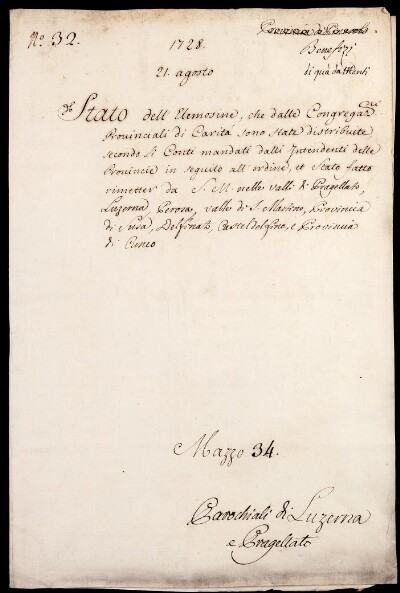 N.º 32.
1728.
21. agosto
Provincia di Pinerolo.
Benefizi
di quà da Monti
Stato dell'Elemosine, che dalle Congregaz.ni
Provinciali di Carità sono state distribuite
secondo li Conti mandati dalli Intendenti delle
Provincie in seguito all'ordine, et Stato fatto
rimetter da S. M. nelle valli di Pragellato,
Luzerna, Perosa, valle di S. Martino, Provincia
di Susa, Delfinato, Casteldelfino, e Provincia
di Cuneo
Mazzo 34.
Parochiali di Luzerna
e Pragellato